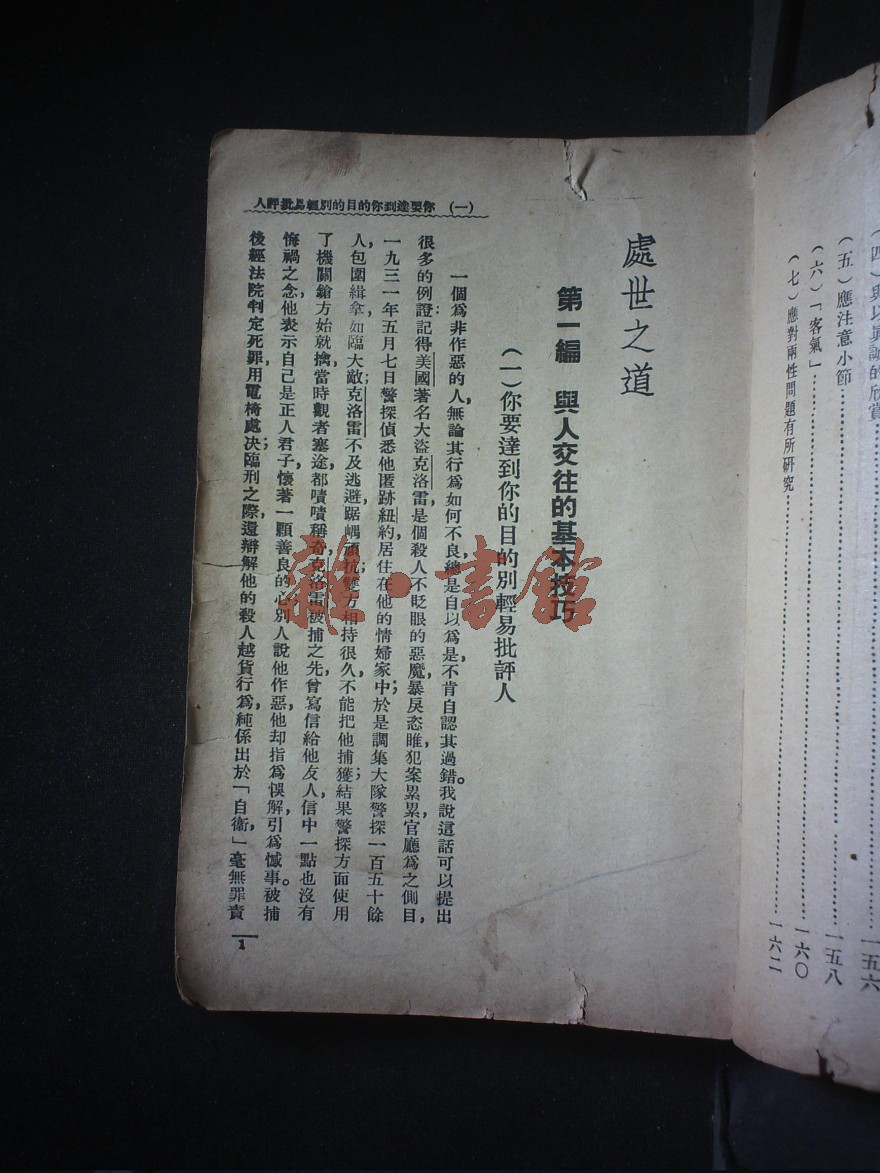 (四)與以眞誠的欣賞……一五六
(五)應注意小節……一五八
(六)「客氣」……一六〇
(七)應對兩性問題有所硏究……一六二
處世之道
第一編 與人交往的基本技巧
(一)你要達到你的目的別輕易批評人
一個爲非作惡的人,無論其行爲如何不良,總是自以爲是,不肯自認其過錯。我說這話可以提出
很多的例證:記得美國著名大盜克洛雷是個殺人不眨眼的惡魔,暴戾恣睢,犯案累累,官廳爲之側目,
一九三一年五月七日警探偵悉他匿跡紐約,居住在他的情婦家中;於是調集大隊警探一百五十餘
人,包圍緝拿,如臨大敵;克洛雷不及逃避,踞嵎頑抗;雙方相持很久,不能把他捕獲;結果警探方面使用
了機關鎗,方始就擒,當時觀者塞途,都嘖嘖稱奇,克洛雷被捕之先,曾寫信給他友人,信中一點也沒有
悔禍之念,他表示自己是正人君子,懷著一顆善良的心;別人說他作惡,他却指爲悞解,引爲憾事。被捕
後,經法院判定死罪,用電椅處决;臨刑之際,還辯解他的殺人越貨行爲,純係出於「自衞,」毫無罪責
(一) 你要達到你的目的別輕易批評人
1
雜·書館